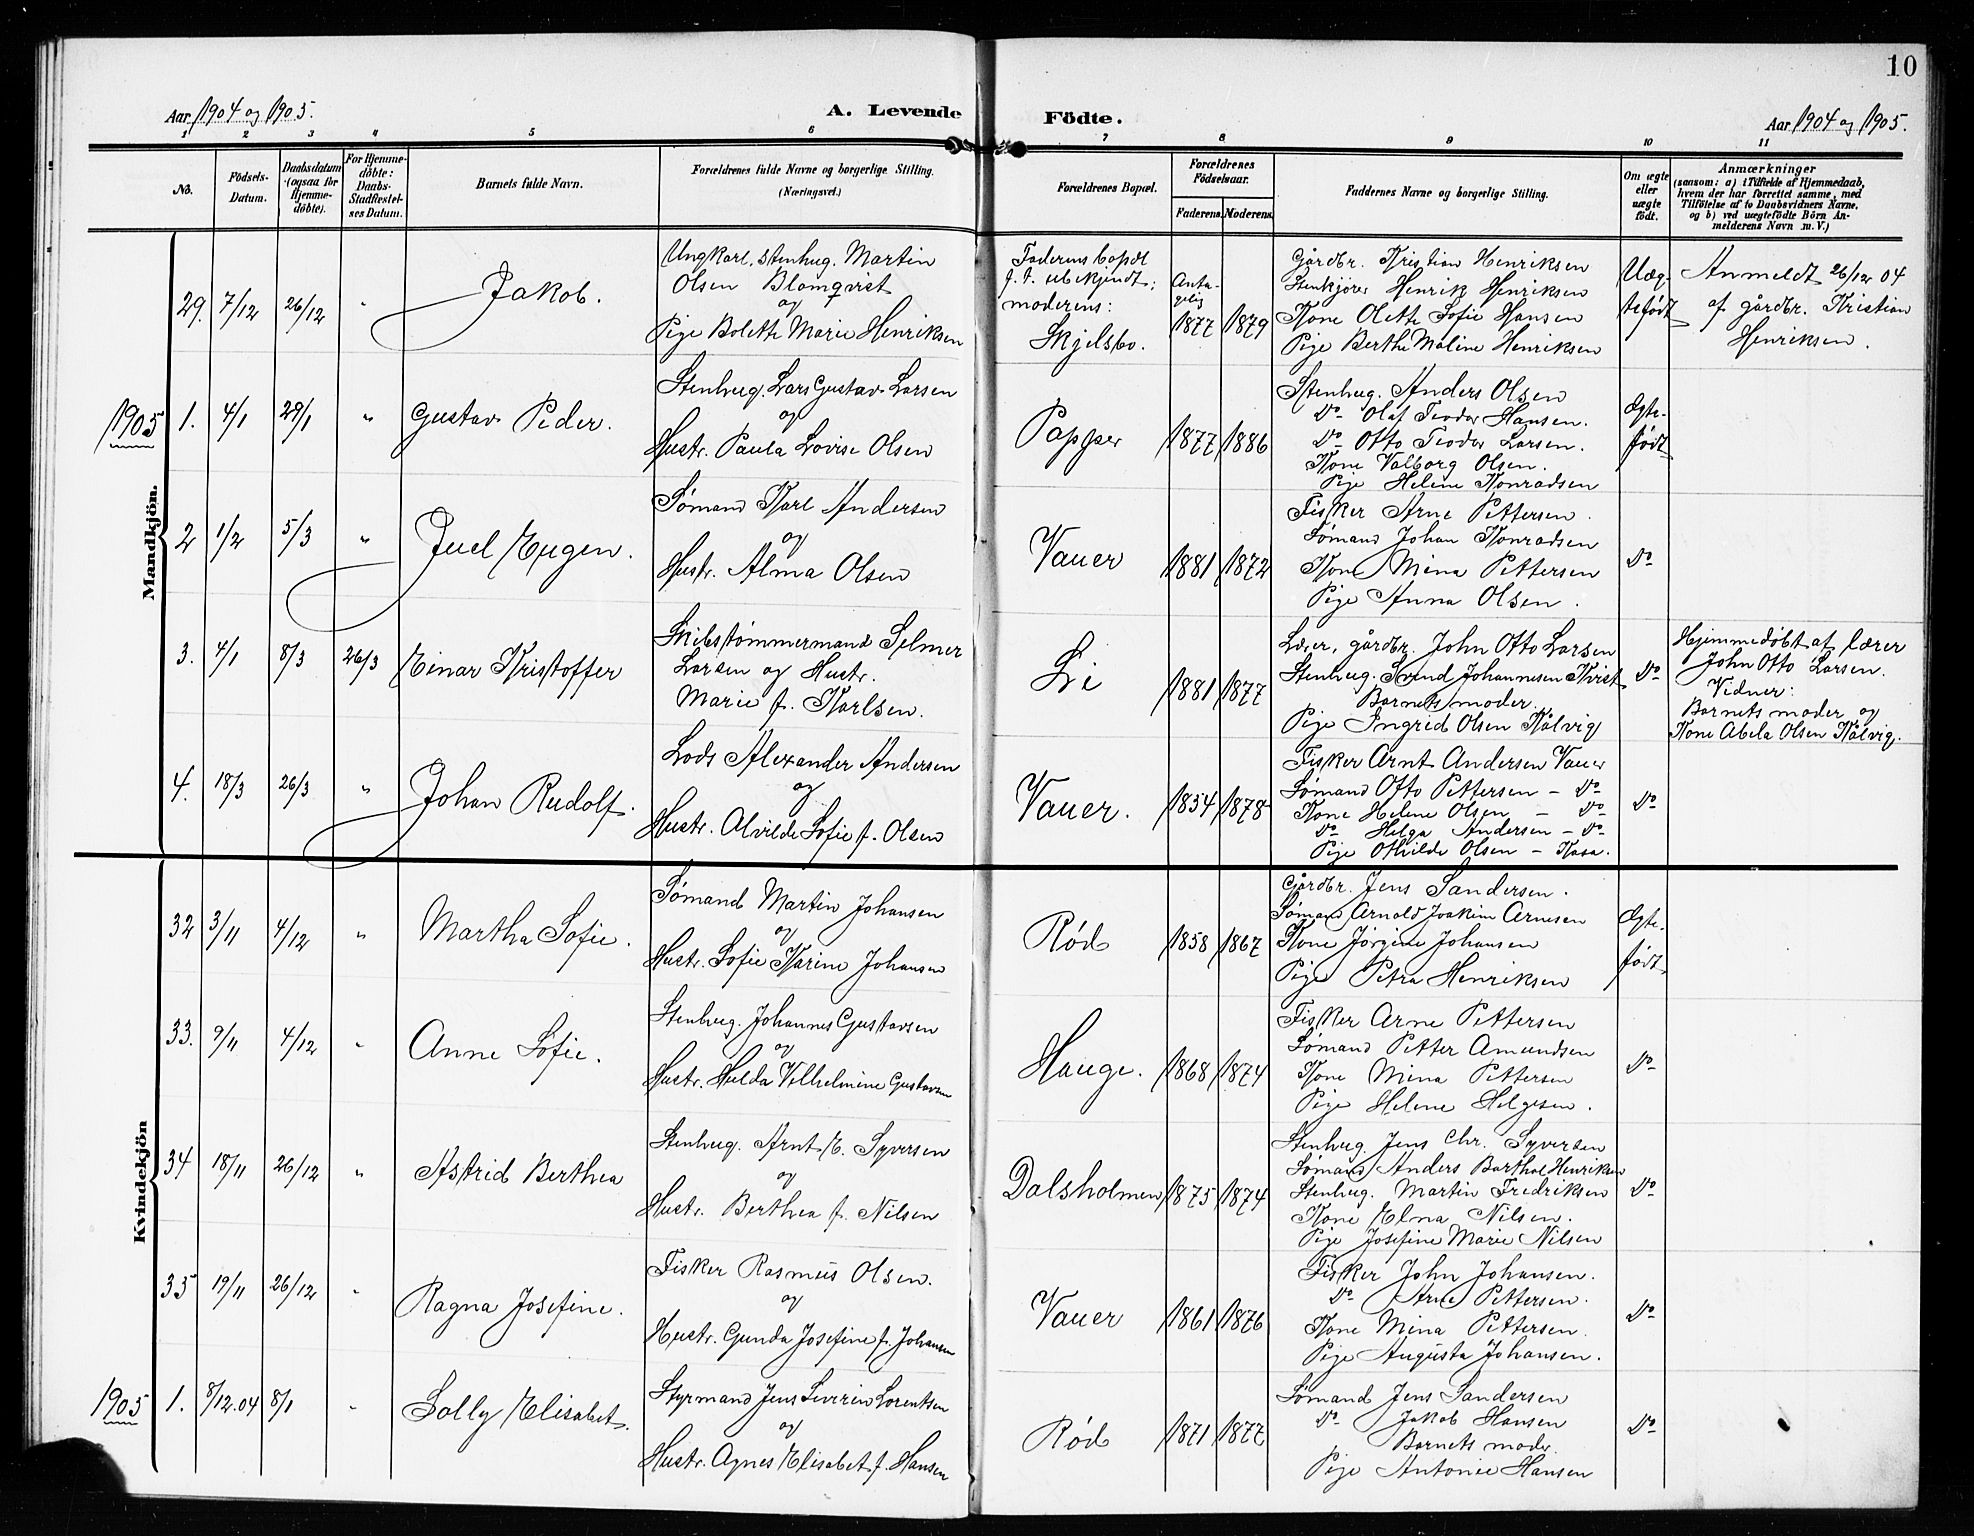 10
Aar 1904 og 1905.
A. Levende
Födte.
Aar 1904 og 1905.
1 2 3 4 5 6 7 8 9 10 11
No.
Födsels-
Datum.
Daabsdatum
(ogsaa for
Hjemme-
döbte).
For Hjemme-
döbte:
Daabs-
Stadfæstel-
ses Datum.
Barnets fulde Navn.
Forældrenes fulde Navne og borgerlige Stilling.
(Næringsvei.)
Forældrenes Bopæl.
Forældrenes
Födselsaar.
Faderens. Moderens.
Faddernes Navne og borgerlige Stilling.
Om ægte
eller
uægte
födt.
Anmærkninger
(saasom: a) i Tilfælde af Hjemmedaab,
hvem der har forrettet samme, med
Tilföielse af to Daabsvidners Navne,
og b) ved uægtefödte Börn An-
melderens Navn m. V.)
Mandkjön.
29. 7/12 26/12 "
Jakob.
Ungkarl, stenhug. Martin
Olsen Blomqvist
og
Pige Bolette Marie Henriksen
Faderens bopæl
f. t. ubekjendt;
moderens:
Skjelsbo.
Anta-
gelig
1877 1879
Gårdbr. Kristian Henriksen
Stenkjører Henrik Henriksen
Kone Olette Sofie Hansen
Pige Berthe Maline Henriksen
Uæg-
tefødt
Anmeldt 26/12 04
af gårdbr. Kristian
Henriksen.
1905
1. 4/1 29/1 "
Gustav Peder.
Stenhug. Lars Gustav Larsen
og
Hustr. Paula Lovise Olsen
Papper
1877 1886
Stenhug. Anders Olsen
Do Olaf Teodor Hansen.
Do Otto Teodor Larsen.
Kone Valborg Olsen.
Pige Helene Konradsen
Ægte-
født
2 1/2 5/3 "
Juel Eugen.
Sømand Karl Andersen
og
Hustr. Alma Olsen
Vauer
1881 1872
Fisker Arne Pettersen.
Sømand Johan Konradsen
Kone Mina Pettersen
Pige Anna Olsen.
Do
3. 4/1 8/3 26/3
Einar Kristoffer
Skibstømmermand Selmer
Larsen og Hustr.
Marie f. Karlsen.
Li
1881 1877
Lærer, gårdbr. John Otto Larsen
Stenhug. Svend Johannesen Kvist
Barnets moder.
Pige Ingrid Olsen Kålvig
Do
Hjemmedøbt af lærer
John Otto Larsen.
Vidner:
Barnets moder og
Kone Abela Olsen Kålvig.
4. 18/3 26/3 "
Johan Rudolf.
Lods Alexander Andersen
og
Hustr. Alvilde Sofie f. Olsen
Vauer.
1854 1878
Fisker Arnt Andersen Vauer
Sømand Otto Pettersen - Do
Kone Helene Olsen - Do
Do Helga Andersen - Do
Pige Othilde Olsen - Kasa.
Do
Kvindekjön
32 3/11 4/12 "
Martha Sofie.
Sømand Martin Johansen
og
Hustr. Sofie Karine Johansen
Rød
1858 1867
Gårdbr. Jens Sandersen.
Sømand Arnold Joakim Arnesen
Kone Jørgine Johansen
Pige Petra Henriksen
Ægte-
født
33. 9/11 4/12 "
Anne Sofie.
Stenhug. Johannes Gustavsen
og
Hustr. Hulda Vilhelmine Gustavsen
Hauge.
1868 1874
Fisker Arne Pettersen
Sømand Petter Amundsen
Kone Mina Pettersen
Pige Helene Helgesen.
Do
34 18/11 26/12 "
Astrid Berthea
Stenhug. Arnt E. Syversen
og
Hustr. Berthea f. Nilsen
Dalsholmen
1875 1874
Stenhug. Jens Chr. Syversen
Sømand Anders Barthol Henriksen
Stenhug. Martin Fredriksen
Kone Elna Nilsen.
Pige Josefine Marie Nilsen
Do
35 19/11 26/12 "
Ragna Josefine.
Fisker Rasmus Olsen.
og
Hustr. Gunda Josefine f. Johansen
Vauer
1861 1876
Fisker John Johansen.
Do Arne Pettersen.
Kone Mina Pettersen.
Pige Augusta Johansen.
Do
1905
1. 8/12.04 8/1 "
Solly Elisabet.
Styrmand Jens Severin Lorentsen
og
Hustr. Agnes Elisabet f. Hansen
Rød
1871 1877
Sømand Jens Sandersen
Do Jakob Hansen
Barnets moder.
Pige Antonie Hansen
Do